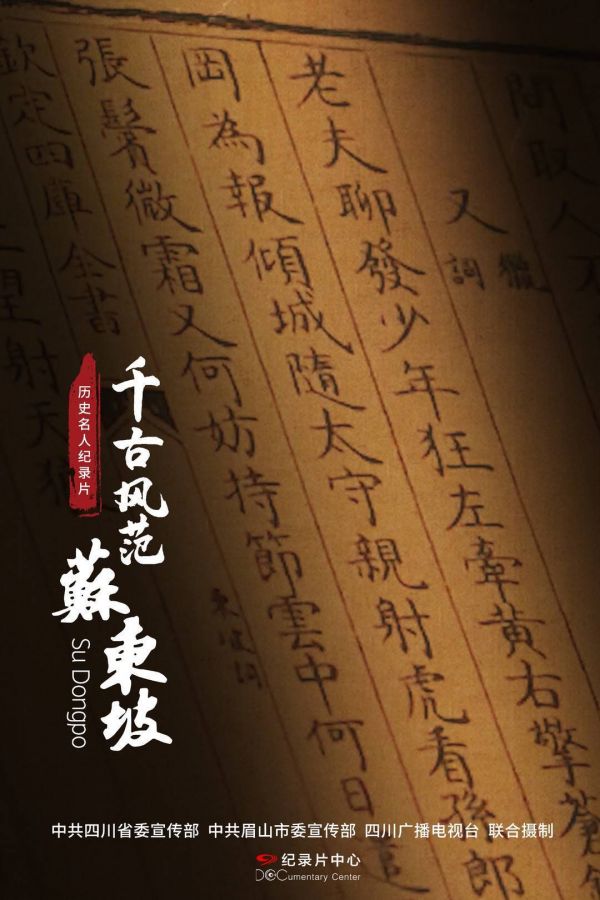 問取人
又
獵
詞
老夫聊發少年狂左牽黃右擎蒼
岡為報傾城隨太守親射虎看孫郎
張鬢微霜又何妨持節雲中何日遣
欽定四庫全書
東坡詞
望射天狼
历史名人纪录片
千古风范
蘇東坡
Su Dongpo
中共四川省委宣传部 中共眉山市委宣传部 四川广播电视台 联合摄制
纪录片中心
DOCumentary Center